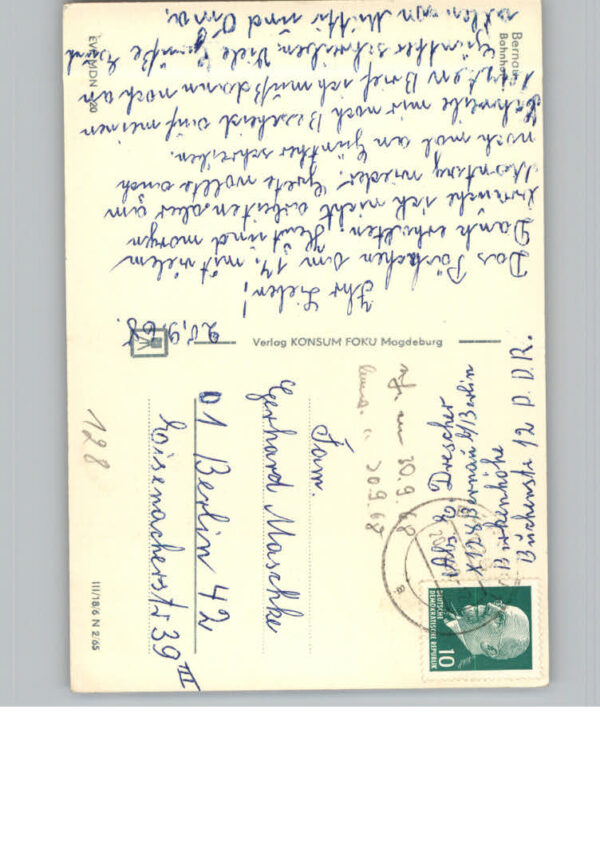 Bernau
Bahnhof
20.9.68.
Ihr Lieben!
Das Päckchen am 14. mit vielem
Dank erhalten. Heut und morgen
brauche ich nicht arbeiten aber am
Montag wieder. Grete wollte auch
noch mal an Günther schreiben.
Schreibe mir noch Bescheid auf meinen
Brief ich muß dann noch an
Günther schreiben. Viele Grüße Euch
allen von Mutti und Oma.
EVP MDN
Verlag KONSUM FOKU Magdeburg
III/18/6 N 2/65
128
Abs. E. Drescher
X128 Bernau b/Berlin
Birkenhöhe
Buchenstr 12 D.D.R.
20.9.68
20.9.68
DEUTSCHE
DEMOKRATISCHE REPUBLIK
10
Fam.
Gerhard Maschke
01 Berlin 42
Eisenacherstr 39 III